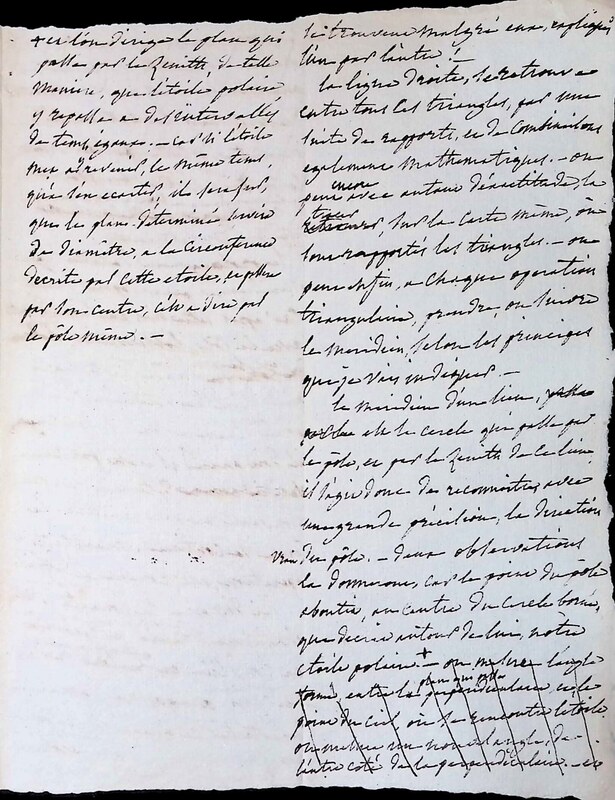 + et l'on dirige le plan qui
passe par le Zenith, de telle
maniere, que l'etoile polaire
y repasse a des intervalles
de temps égaux. — car si l'étoile
met a revenir, le même tems
qu'a s'en ecarter, il sera sur,
que le plan determiné servira
de diamètre, a la circonference
decrite par cette etoile, et passera
par son centre, c'est a dire par
le pôle même. —
se trouvent malgré eux, expliqués
l'un par l'autre!
la ligne droite, se retrouve
entre tous les triangles, par une
suite de rapports, et de combinaisons
egalement mathematiques. — on
peut encore avec autant d'exactitude la
tracer, sur la carte même, où
sont rapportés les triangles. — on
peut enfin, a chaque operation
triangulaire, prendre, ou suivre
le meridien, selon les principes
que je vais indiquer. —
le meridien d'un lieu,
est le cercle qui passe par
le pôle, et par le Zenith de ce lieu
il s'agit donc de reconnoitre, avec
une grande précision, la direction
vraie du pôle. — deux observations
la donneront, car le point du pôle
aboutit, au centre du cercle borné,
que decrit autour de lui, notre
etoile polaire + — on mesure l'angle
formé, entre la perpendiculaire, et le
point du ciel où se rencontre l'étoile
on mesure un nouvel angle, de
l'autre coté de la perpendiculaire. — et